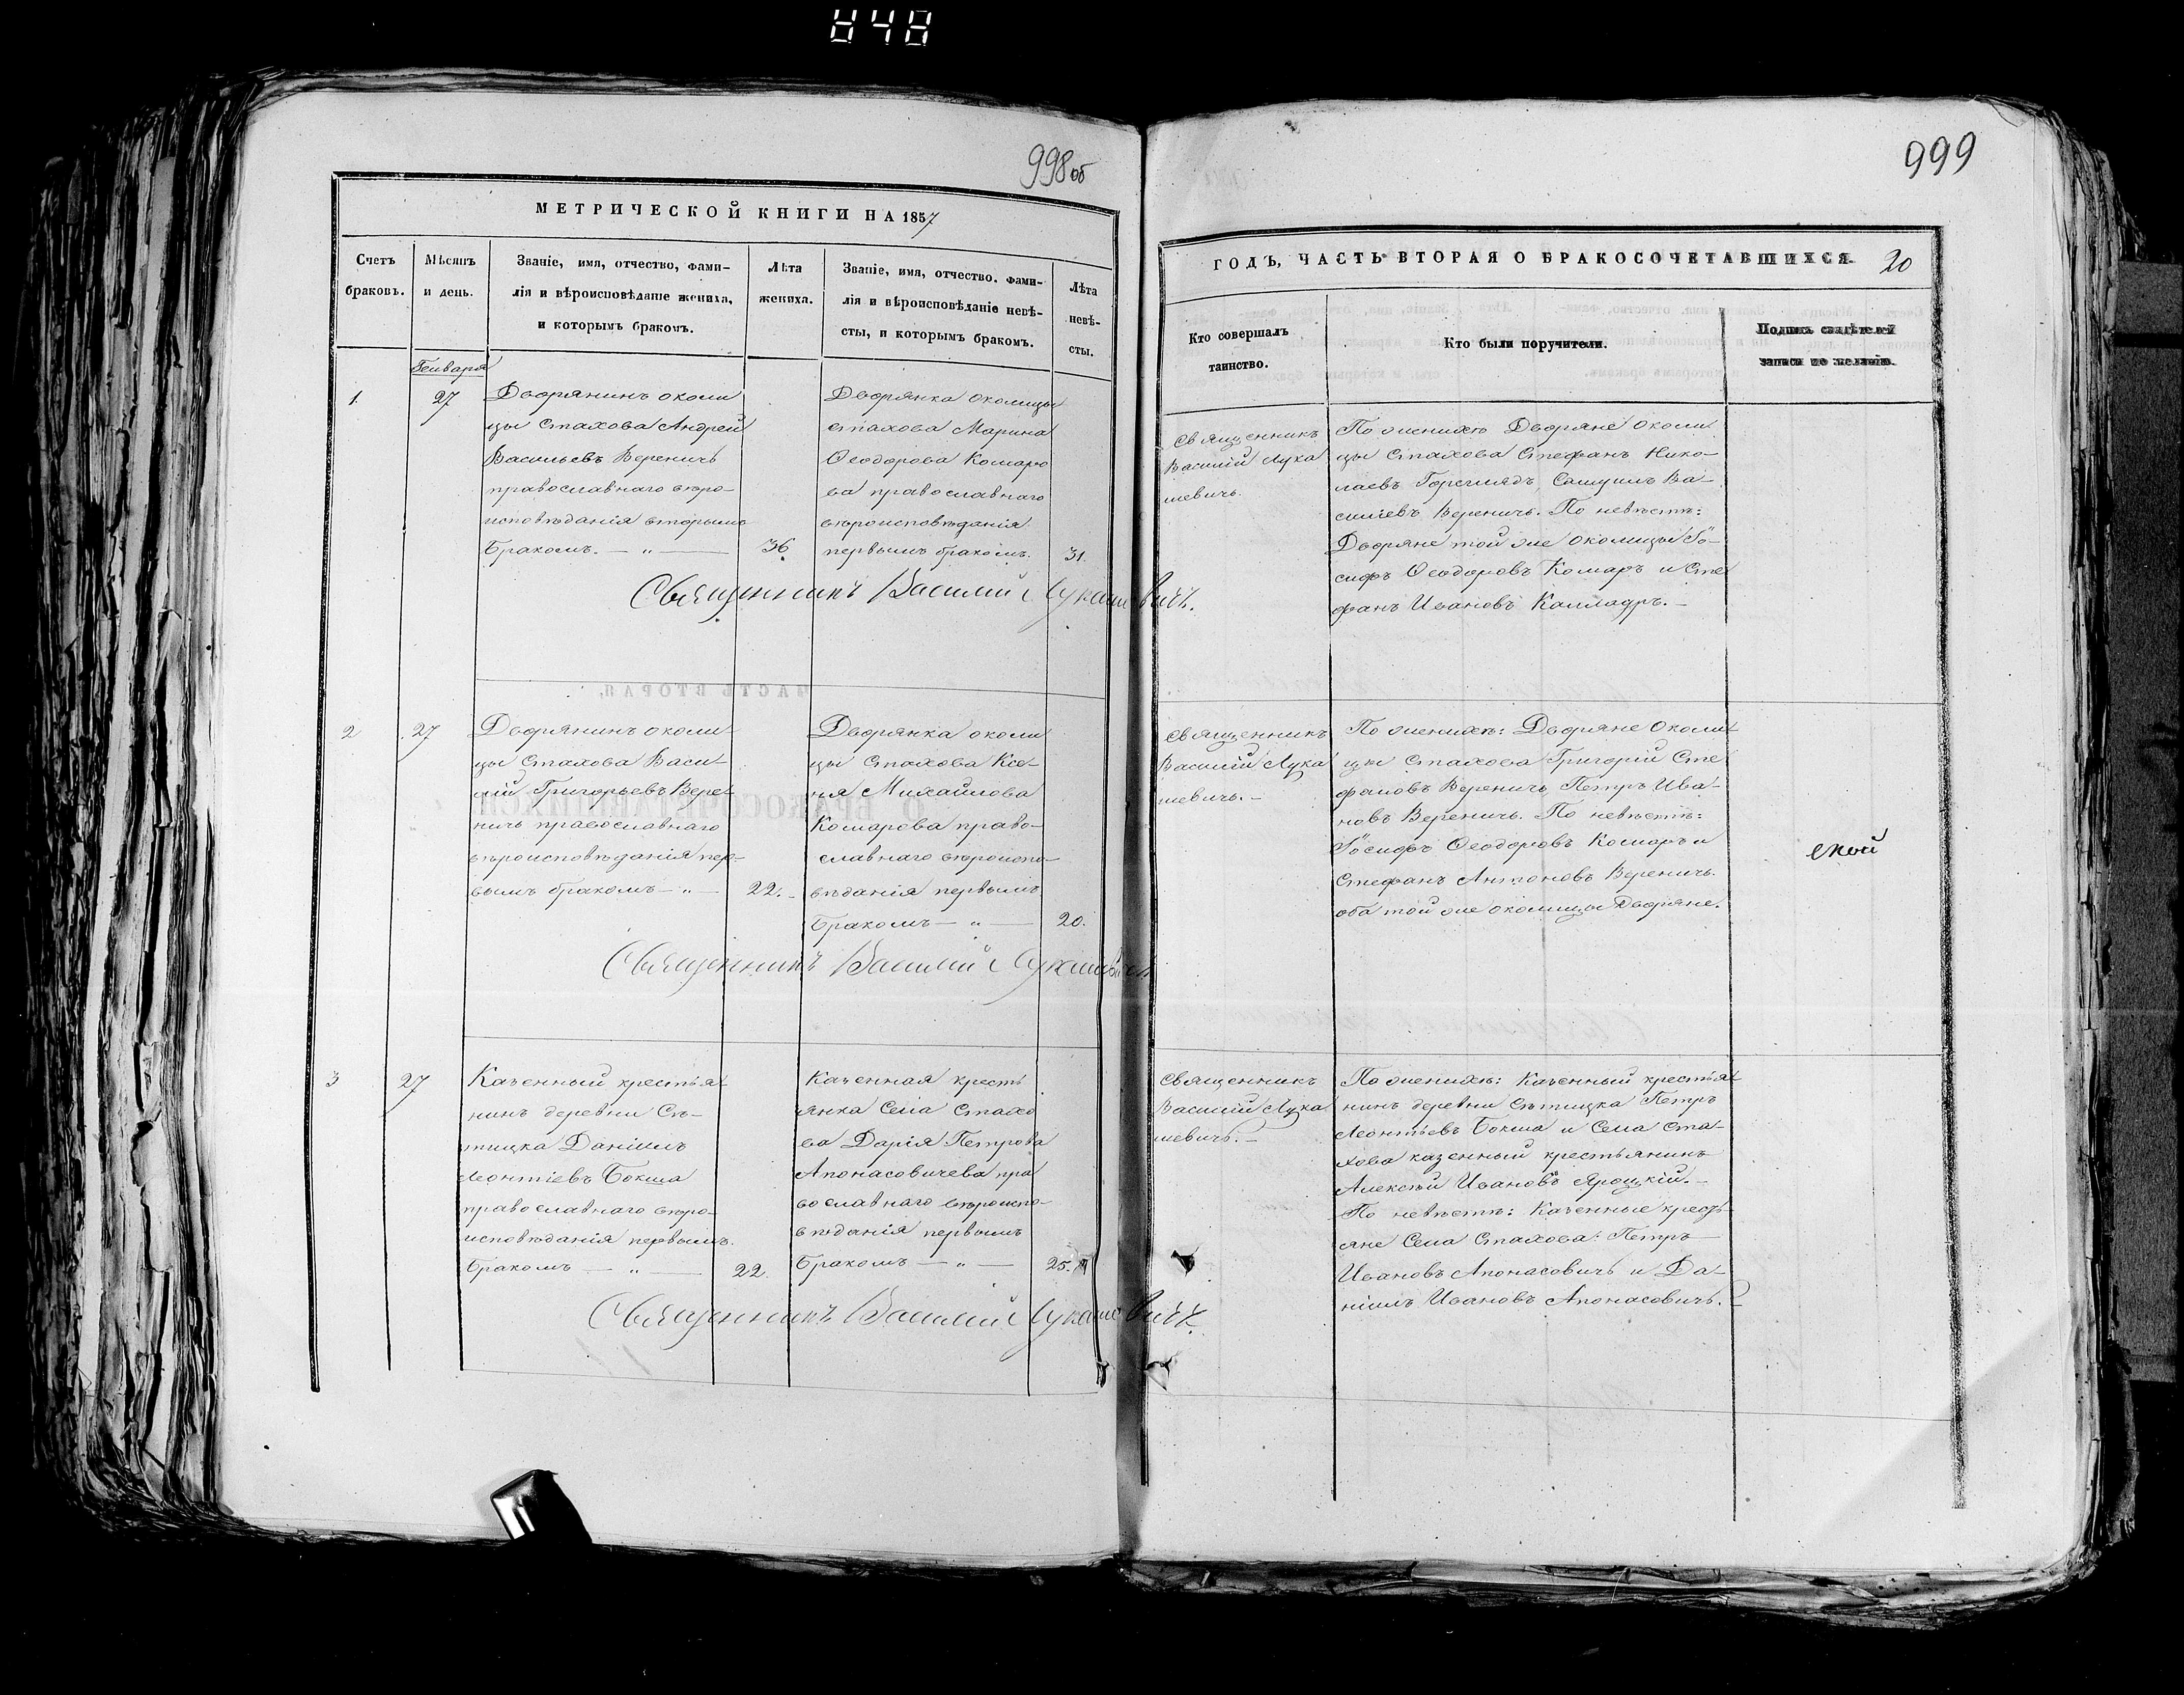 848
998 об
МЕТРИЧЕСКОЙ КНИГИ НА 1857
Счетъ браковъ.
Мѣсяцъ и день.
Званіе, имя, отчество, фами-
лія и вѣроисповѣданіе жениха,
и которымъ бракомъ.
Лѣта жениха.
Званіе, имя, отчество, фами-
лія и вѣроисповѣданіе невѣ-
сты, и которымъ бракомъ.
Лѣта невѣ-
сты.
Генваря
1.
27
Дворянинъ околи
цы Стахова Андрей
Васильевъ Вереничъ
православнаго вѣро-
исповѣданія вторымъ
бракомъ. — „ —
36.
Дворянка околицы
Стахова Марина
Ѳеодорова Комаро
ва православнаго
вѣроисповѣданія
первымъ бракомъ.
31.
Священникъ Василій Лукашевичъ.
2
27
Дворянинъ околи
цы Стахова Васи-
лій Григорьевъ Вере
ничъ православнаго
вѣроисповѣданія пер-
вымъ бракомъ — „ —
22. -
Дворянка околи
цы Стахова Ксе-
нія Михайлова
Комарова право-
славнаго вѣроиспо-
вѣданія первымъ
бракомъ — „ —
20.
Священникъ Василій Лукашевичъ
3
27
Казенный крестья
нинъ деревни Сѣ-
тицка Даніилъ
Леонтіевъ Бокша
православнаго вѣро-
исповѣданія первымъ.
бракомъ — „ —
22.
Казенная кресть
янка Села Стахо
ва Дарія Петрова
Апонасовичева пра
вославнаго вѣроиспо-
вѣданія первымъ
бракомъ — „ —
25.
Священникъ Василій Лукашевичъ.
999
ГОДЪ, ЧАСТЬ ВТОРАЯ О БРАКОСОЧЕТАВШИХСЯ.
20
Кто совершалъ
таинство.
Кто были поручители.
Подпись свидѣтелей
записи по желанію.
Священникъ
Василій Лука
шевичъ.
По женихѣ Дворяне околи
цы Стахова Стефанъ Нико-
лаевъ Горегляд, Самуилъ Ва-
силіевъ Вереничъ. По невѣстѣ:
Дворяне той же околицы Іо-
сифъ Ѳеодоровъ Комаръ и Сте
фанъ Ивановъ Каллаdръ. —
Священникъ
Василій Лука
шевичъ. —
По женихѣ: Дворяне Околи
цы Стахова Григорій Сте
фановъ Вереничъ, Петръ Ива-
новъ Вереничъ. По невѣстѣ:
Іосифъ Ѳеодоровъ Комаръ и
Стефанъ Антоновъ Вереничъ.
оба той же околицы Дворяне.
ской
Священникъ
Василій Лука
шевичъ. —
По женихѣ: Казенный крестья
нинъ деревни Сѣтицка Петръ
Леонтьевъ Бокша и Села Ста-
хова казенный крестьянинъ
Алексѣй Ивановъ Яроцкій. —
По невѣстѣ: Казенные кресть
яне Села Стахова: Петръ
Ивановъ Апонасовичъ и Да-
ніилъ Ивановъ Апонасовичъ. —